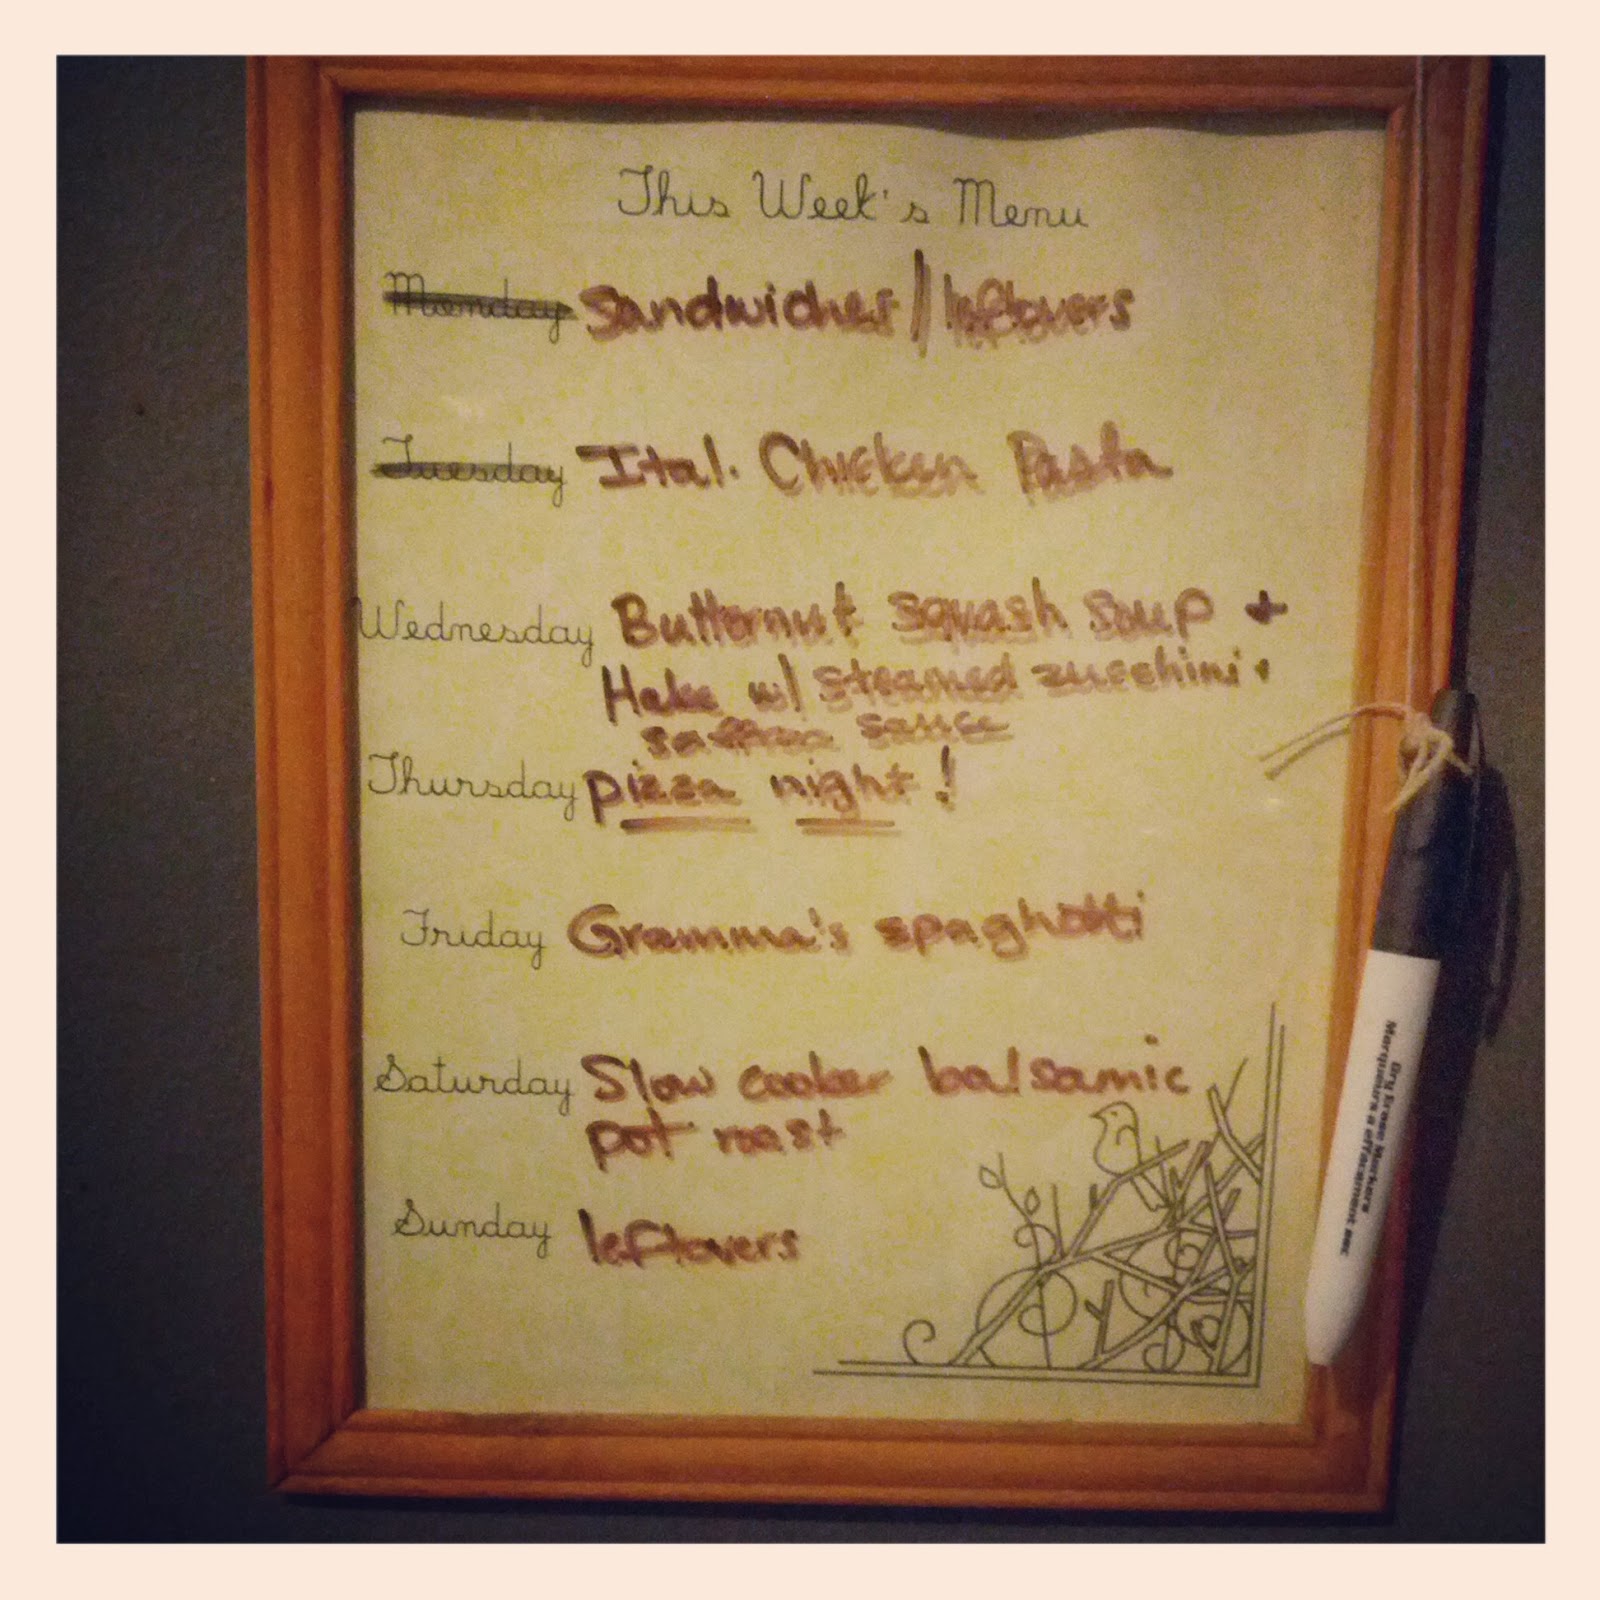 This Week's Menu
Monday Sandwiches/leftovers
Tuesday Ital. Chicken Pasta
Wednesday Butternut squash soup +
Hake w/ steamed zucchini +
saffron sauce
Thursday pizza night!
Friday Gramma's spaghetti
Saturday Slow cooker balsamic
pot roast
Sunday leftovers
Dry Erase Markers
Marqueurs à effacement sec